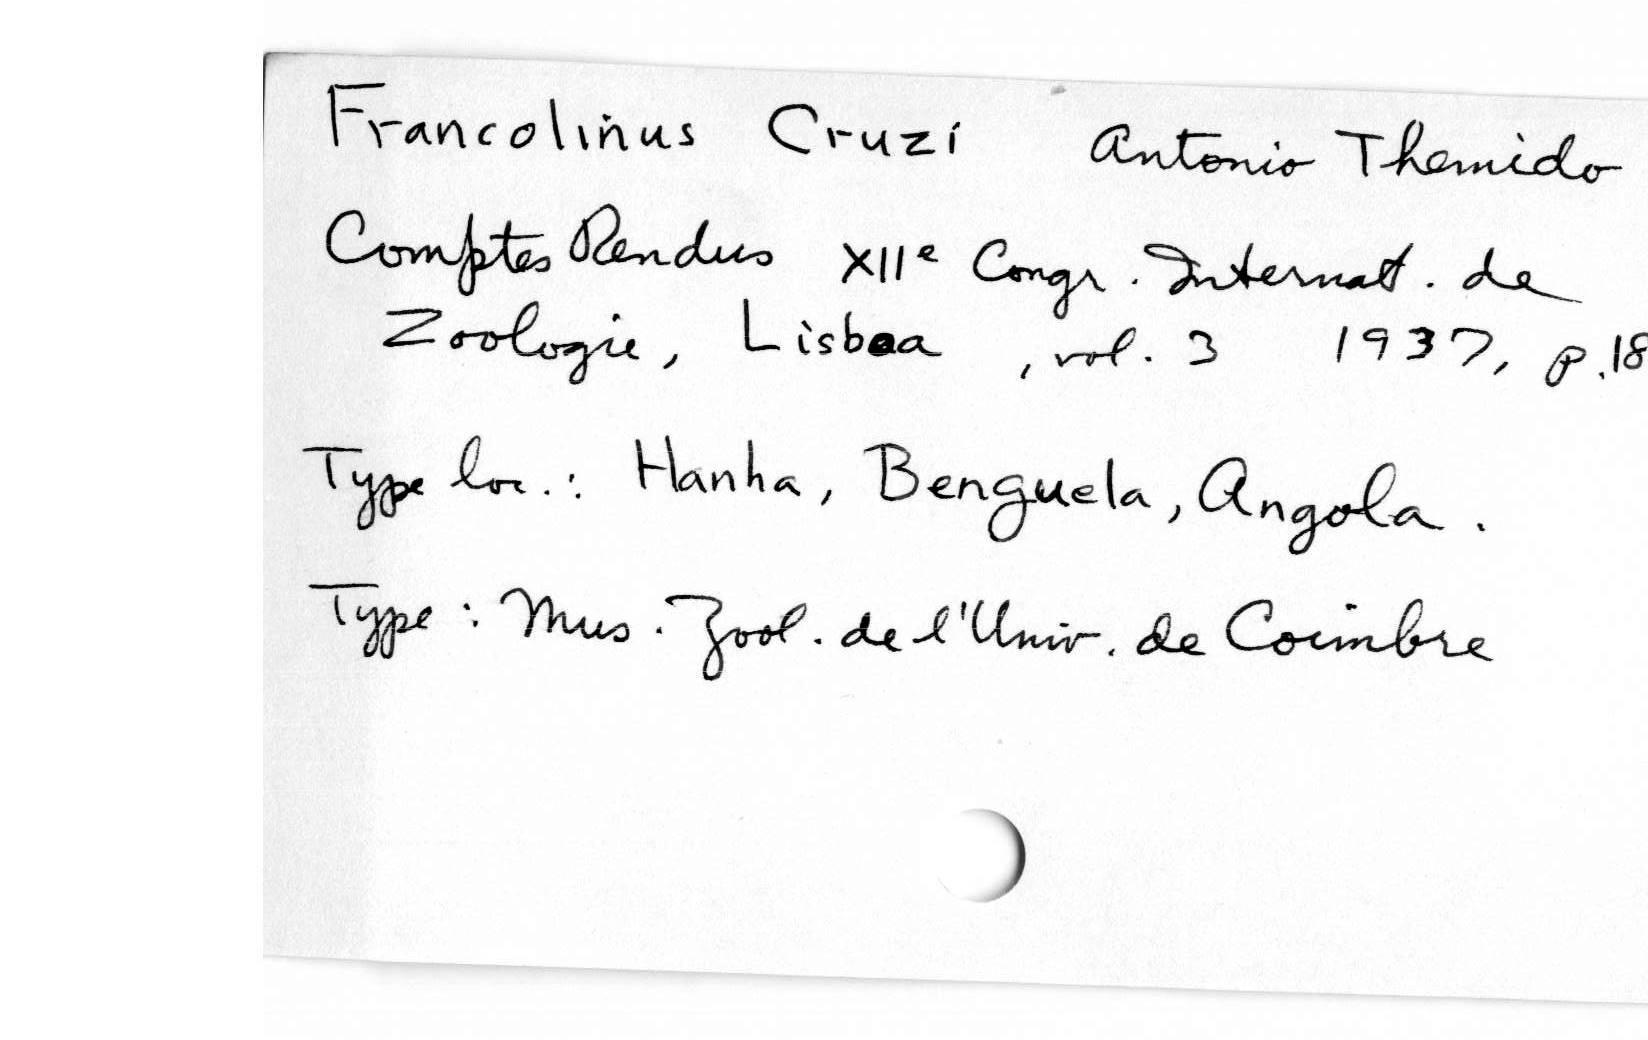 Francolinus Cruzi Antonio Themido
Comptes Rendus XIIe Congr. Internat. de
Zoologie, Lisboa, vol. 3 1937, p.18
Type loc.: Hanha, Benguela, Angola.
Type: Mus. Zool. de l'Univ. de Coimbre